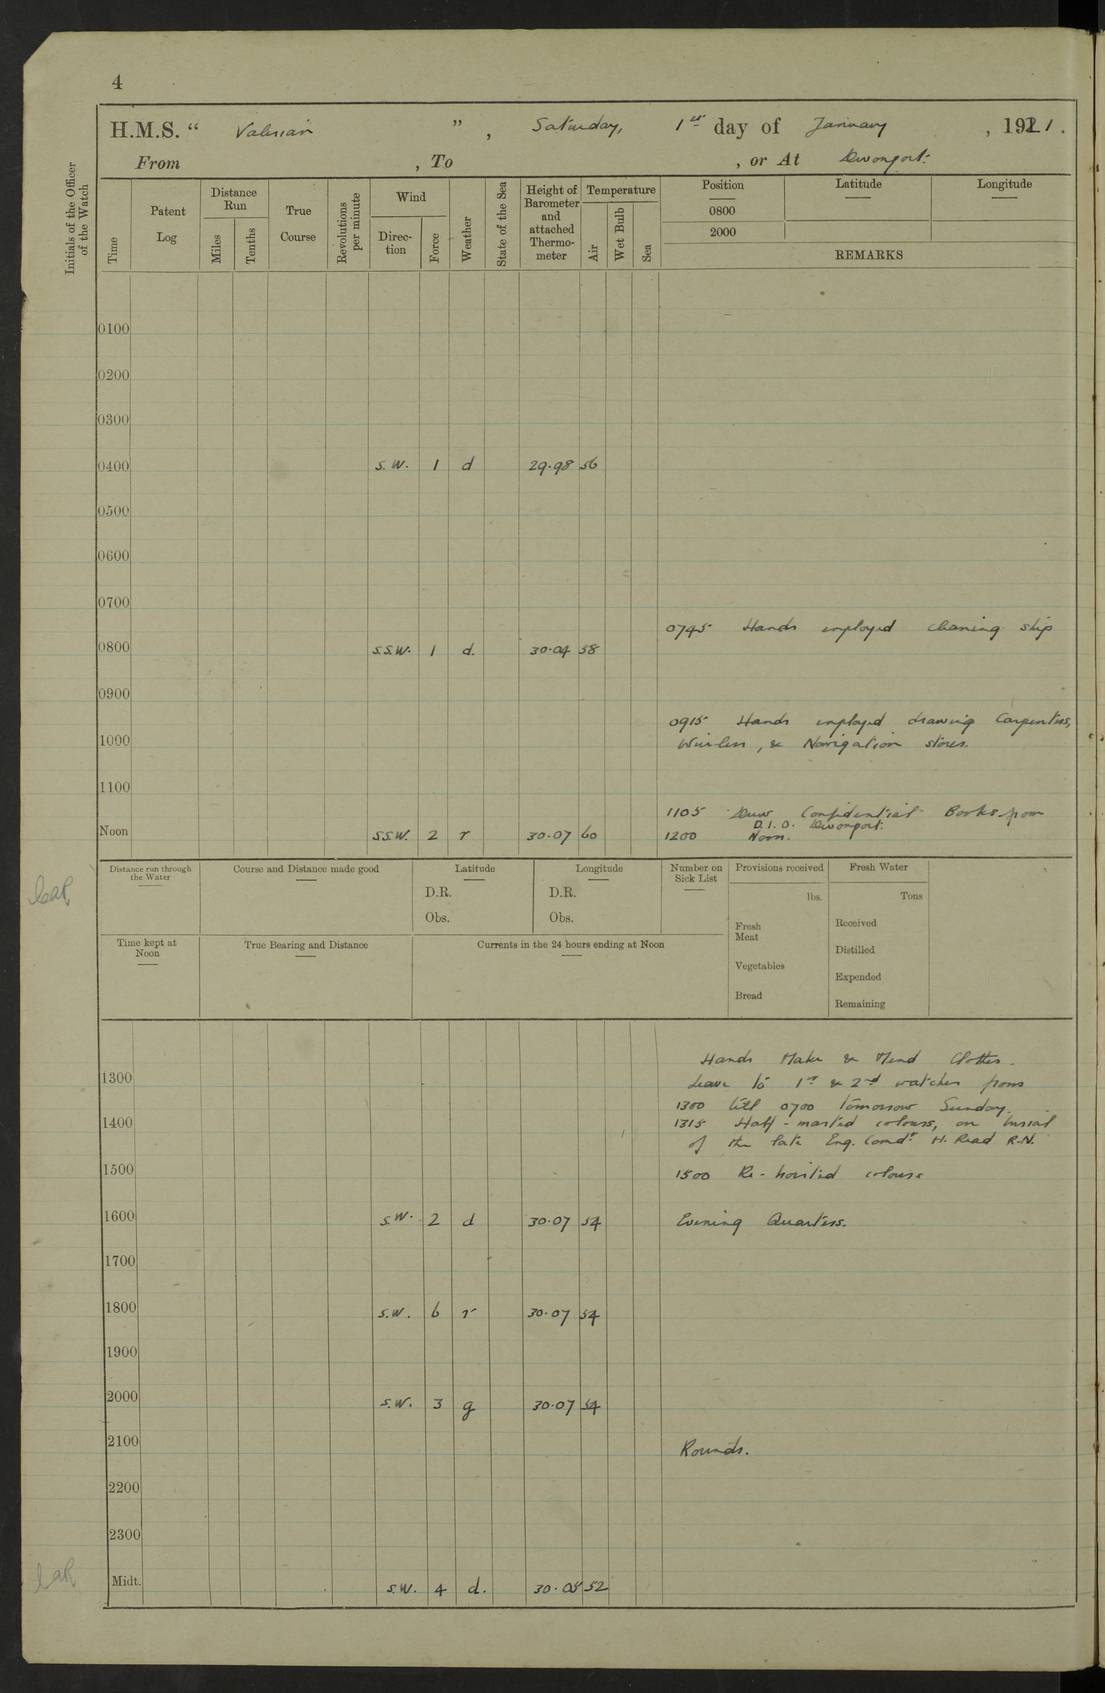 4
H.M.S. “ Valerian ” , Saturday, 1st day of January , 1921.
From , To , or At Devonport.
Initials of the Officer of the Watch
Time
Patent Log
Distance Run
Miles
Tenths
True Course
Revolutions per minute
Wind
Direction
Force
Weather
State of the Sea
Height of Barometer and attached Thermometer
Temperature
Air
Wet Bulb
Sea
Position
Latitude
Longitude
0800
2000
REMARKS
0100
0200
0300
0400 S.W. 1 d 29.98 56
0500
0600
0700
0745 Hands employed cleaning ship
0800 S.S.W. 1 d. 30.04 58
0900
0915 Hands employed drawing Carpenters,
Wireless, & Navigation stores.
1000
1100
1105 Drew Confidential Books from
D.I.O. Devonport.
Noon S.S.W. 2 r 30.07 60 1200 Noon.
Distance run through the Water
Course and Distance made good
Latitude
D.R.
Obs.
Longitude
D.R.
Obs.
Number on Sick List
Provisions received
lbs.
Fresh Meat
Vegetables
Bread
Fresh Water
Tons
Received
Distilled
Expended
Remaining
Time kept at Noon
True Bearing and Distance
Currents in the 24 hours ending at Noon
Hands Make & Mend Clothes.
1300 Leave to 1st & 2nd watches from
1300 till 0700 tomorrow Sunday.
1400 1315 Half-masted colours, on burial
of the late Eng. Comdr. H. Read R.N.
1500 1500 Re-hoisted colours
1600 S.W. 2 d 30.07 54 Evening Quarters.
1700
1800 S.W. 6 r 30.07 54
1900
2000 S.W. 3 g 30.07 54
2100 Rounds.
2200
2300
Midt. S.W. 4 d. 30.05 52